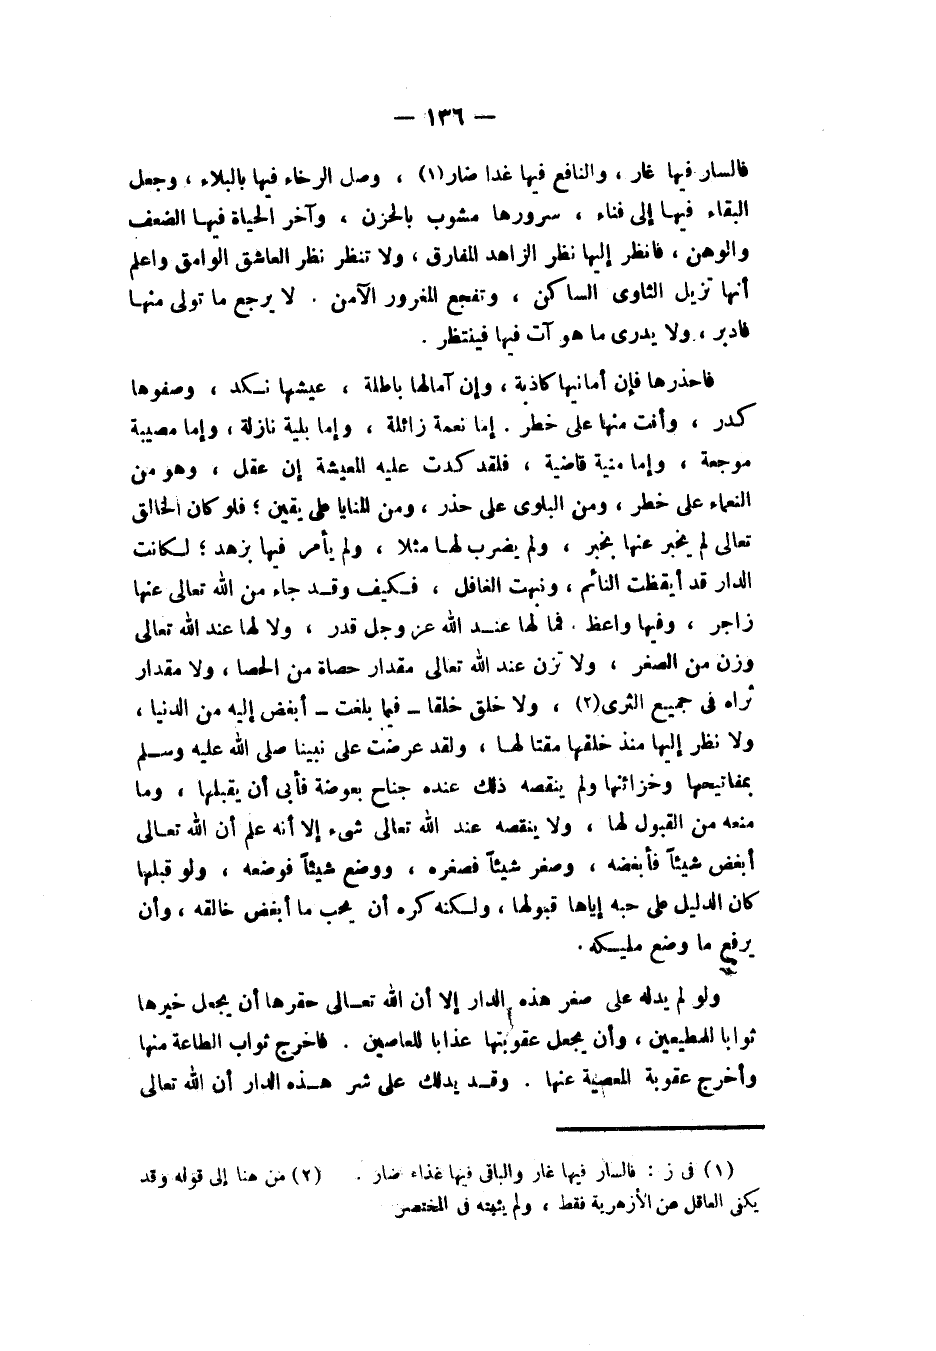 — ١٣٦ —
فالسار فيها غار ، والنافع فيها غدا ضار(١) ، وصل الرخاء فيها بالبلاء ، وجعل
البقاء فيها إلى فناء ، سرورها مشوب بالحزن ، وآخر الحياة فيها الضعف
والوهن ، فانظر إليها نظر الزاهد المفارق ، ولا تنظر نظر العاشق الوامق واعلم
أنها تزيل الثاوى الساكن ، وتفجع المغرور الآمن . لا يرجع ما تولى منها
فادبر ، ولا يدرى ما هو آت فيها فينتظر .
فاحذرها فإن أمانيها كاذبة ، وإن آمالها باطلة ، عيشها نكد ، وصفوها
كدر ، وأنت منها على خطر . إما نعمة زائلة ، وإما بلية نازلة ، وإما مصيبة
موجعة ، وإما منية قاضية ، فلقد كدت عليه المعيشة إن عقل ، وهو من
النعماء على خطر ، ومن البلوى على حذر ، ومن المنايا على يقين ؛ فلو كان الخالق
تعالى لم يخبر عنها بخبر ، ولم يضرب لها مثلا ، ولم يأمر فيها بزهد ؛ لكانت
الدار قد أيقظت النائم ، ونبهت الغافل ، فكيف وقد جاء من الله تعالى عنها
زاجر ، وفيها واعظ . فما لها عند الله عز وجل قدر ، ولا لها عند الله تعالى
وزن من الصغر ، ولا تزن عند الله تعالى مقدار حصاة من الحصا ، ولا مقدار
ثراه فى جميع الثرى(٢) ، ولا خلق خلقا – فيما بلغت – أبغض إليه من الدنيا ،
ولا نظر إليها منذ خلقها مقتا لها ، ولقد عرضت على نبينا صلى الله عليه وسلم
بمفاتيحها وخزائنها ولم ينقصه ذلك عنده جناح بعوضة فأبى أن يقبلها ، وما
منعه من القبول لها ، ولا ينقصه عند الله تعالى شىء إلا أنه علم أن الله تعالى
أبغض شيئاً فأبغضه ، وصغر شيئاً فصغره ، ووضع شيئاً فوضعه ، ولو قبلها
كان الدليل على حبه إياها قبولها ، ولكنه كره أن يحب ما أبغض خالقه ، وأن
يرفع ما وضع مليكه .
ولو لم يدله على صغر هذه الدار إلا أن الله تعالى حقرها أن يجعل خيرها
ثوابا للمطيعين ، وأن يجعل عقوبتها عذابا للعاصين . فاخرج ثواب الطاعة منها
وأخرج عقوبة المعصية عنها . وقد يدلك على شر هذه الدار أن الله تعالى
(١) فى ز : فالسار فيها غار والباقى فيها غذاء ضار . (٢) من هنا إلى قوله وقد
يكنى العاقل من الأزهرية فقط ، ولم يثبته فى المختصر